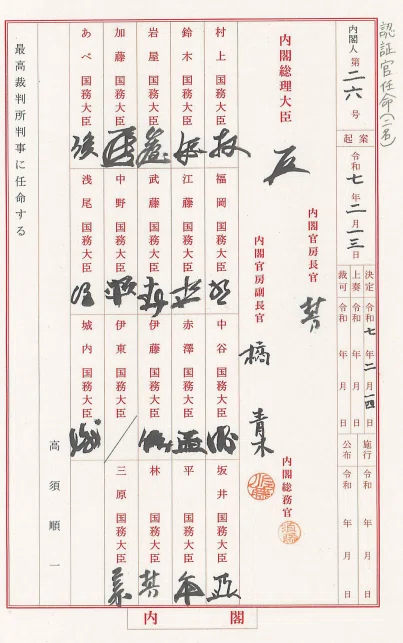 認証官任命(二名)
内閣人第二六号
起案 令和七年二月一三日
決定 令和七年二月一四日
上奏 令和 年 月 日
裁可 令和 年 月 日
施行 令和 年 月 日
公布 令和 年 月 日
内閣総理大臣
内閣官房長官
内閣官房副長官 橘 青木
内閣総務官
村上国務大臣
福岡国務大臣
中谷国務大臣
坂井国務大臣
鈴木国務大臣
江藤国務大臣
赤澤国務大臣
平国務大臣
岩屋国務大臣
武藤国務大臣
伊藤国務大臣
林国務大臣
加藤国務大臣
中野国務大臣
伊東国務大臣
三原国務大臣
あべ国務大臣
浅尾国務大臣
城内国務大臣
高須順一
最高裁判所判事に任命する
内閣